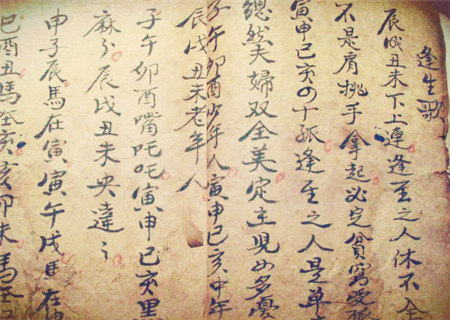 逢生歌
辰戌丑未下上連逢至之人休不全
不是肩挑手拿起必定貧窮受孤
寅申巳亥四丁孤逢至之人是單
總然夫婦双全美定主兒女多憂
子午卯酉少年人寅申巳亥中年
辰戌丑未老年人
子午卯酉嘴吒吒寅申巳亥黑
麻分辰戌丑未央違
申子辰馬在寅寅午戌馬在
巳酉丑馬在亥亥卯未馬在